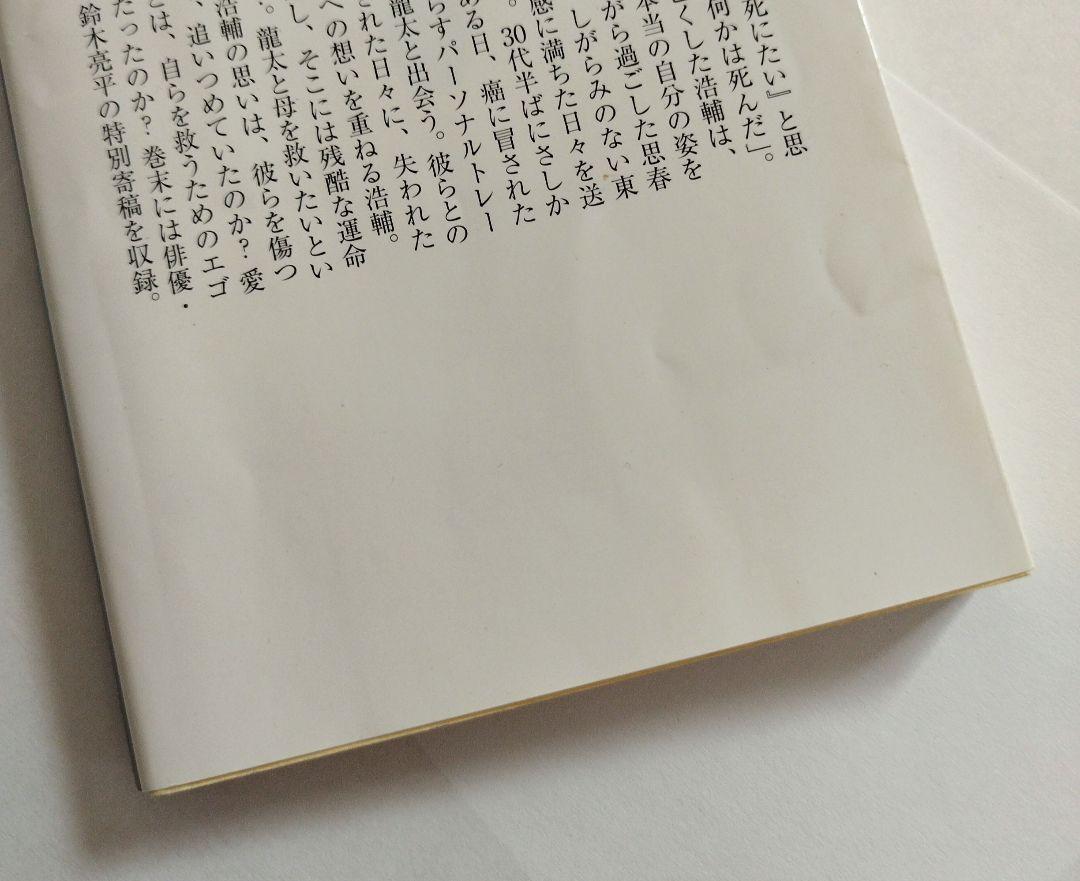 死にたい』と思
何かは死んだ」。
くした浩輔は、
本当の自分の姿を
がら過ごした思春
しがらみのない東
感に満ちた日々を送
。30代半ばにさしか
ある日、癌に冒された
らすパーソナルトレー
龍太と出会う。彼らとの
された日々に、失われた
への想いを重ねる浩輔。
し、そこには残酷な運命
。龍太と母を救いたいとい
浩輔の思いは、彼らを傷つ
、追いつめていたのか? 愛
とは、自らを救うためのエゴ
だったのか? 巻末には俳優・
鈴木亮平の特別寄稿を収録。